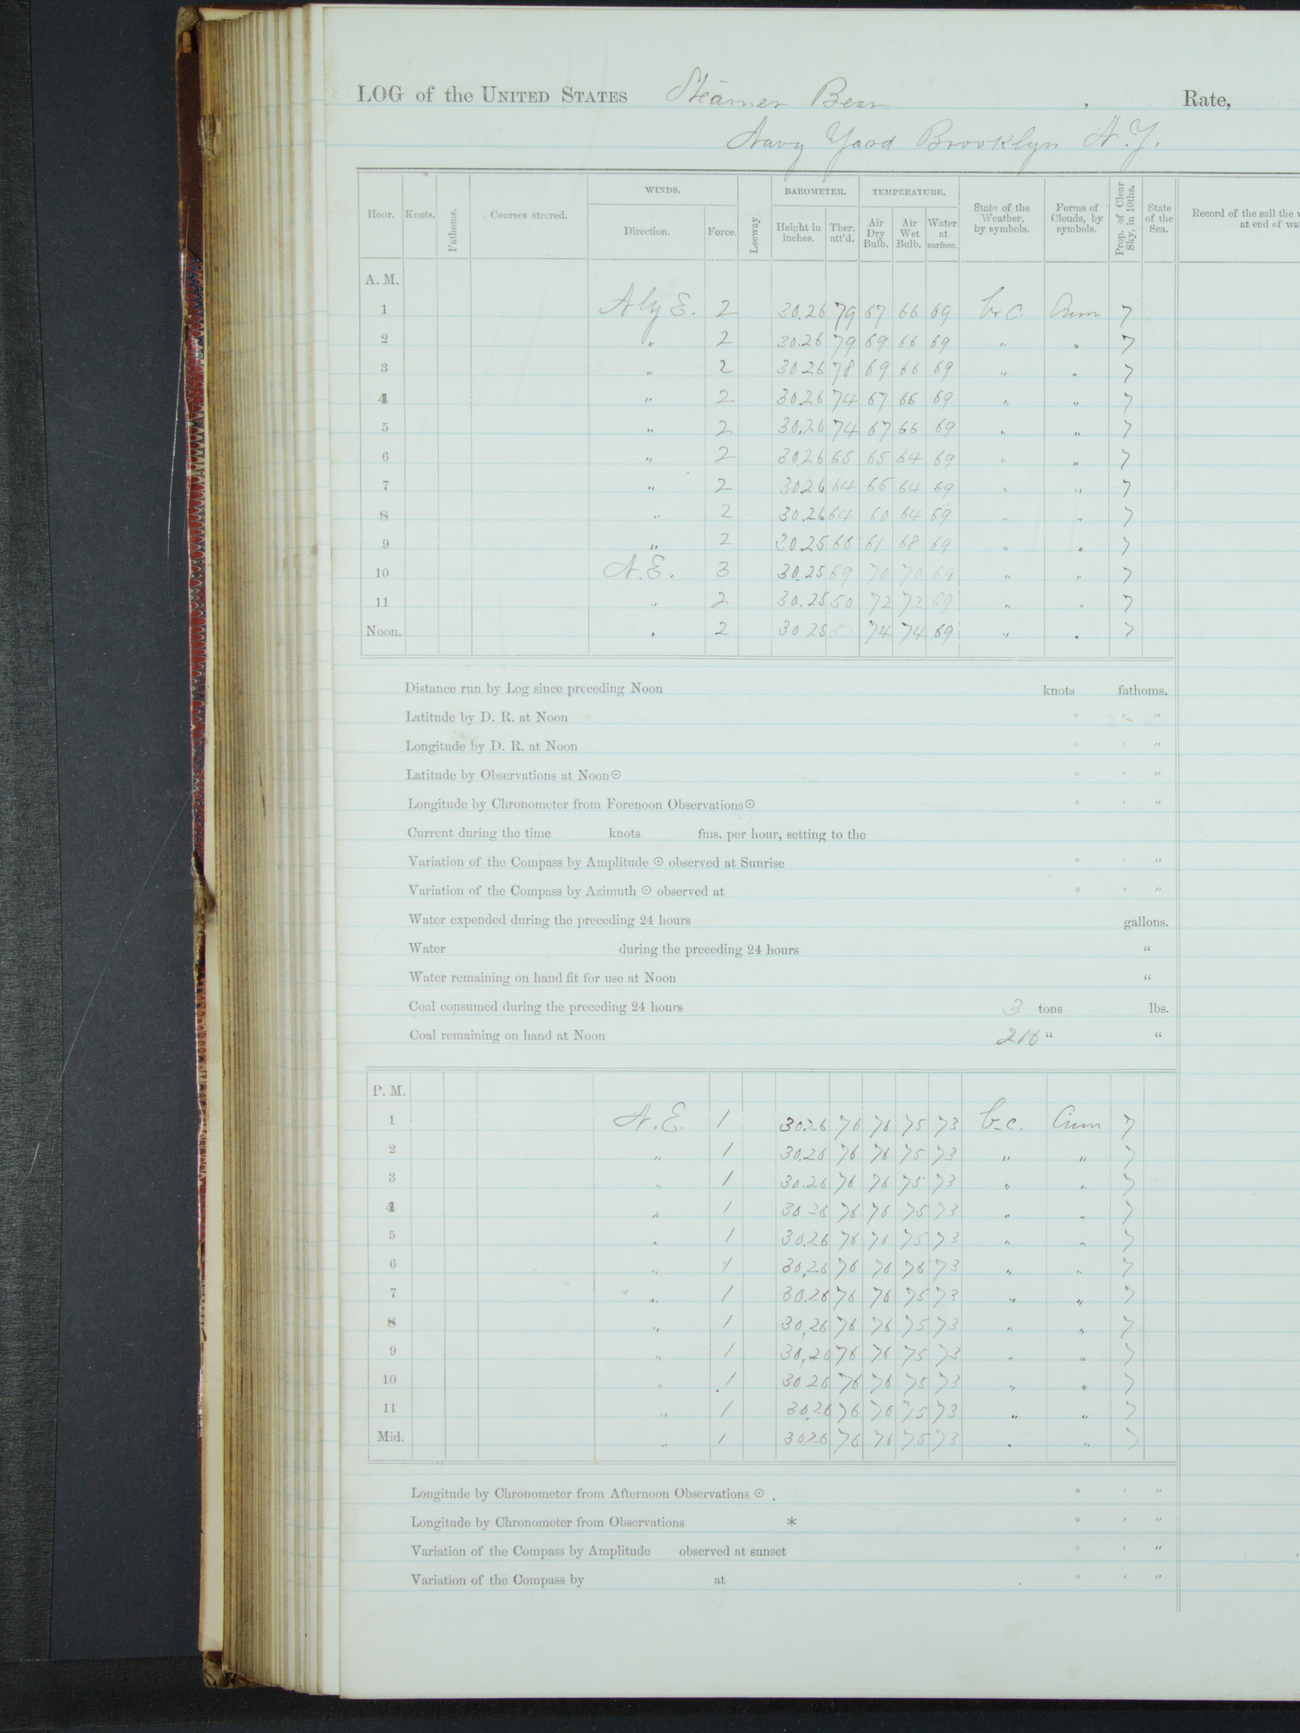 LOG of the UNITED STATES Steamer Bear , Rate,
Navy Yard Brooklyn N.Y.
WINDS. BAROMETER. TEMPERATURE.
Hour. Knots. Fathoms. Courses steered. Direction. Force. Leeway Height in inches. Ther. att'd. Air Dry Bulb. Air Wet Bulb. Water at surface. State of the Weather, by symbols. Forms of Clouds, by symbols. Prop. of Clear Sky, in 10ths. State of the Sea. Record of the sail the
at end of wa
A. M.
1 Nly E. 2 30.26 79 67 66 69 b.c. Cum 7
2 " 2 30.26 79 69 66 69 " " 7
3 " 2 30.26 78 69 66 69 " " 7
4 " 2 30.26 74 67 66 69 " " 7
5 " 2 30.26 74 67 66 69 " " 7
6 " 2 30.26 65 65 64 69 " " 7
7 " 2 30.26 64 66 64 69 " " 7
8 " 2 30.26 64 60 64 69 " " 7
9 " 2 30.25 66 61 68 69 " " 7
10 N.E. 3 30.25 69 70 70 69 " " 7
11 " 2 30.25 50 72 72 69 " " 7
Noon. " 2 30.25 74 74 69 " " 7
Distance run by Log since preceding Noon knots fathoms.
Latitude by D. R. at Noon ° ' "
Longitude by D. R. at Noon ° ' "
Latitude by Observations at Noon ⊙ ° ' "
Longitude by Chronometer from Forenoon Observations ⊙ ° ' "
Current during the time knots fms. per hour, setting to the
Variation of the Compass by Amplitude ⊙ observed at Sunrise ° ' "
Variation of the Compass by Azimuth ⊙ observed at ° ' "
Water expended during the preceding 24 hours gallons.
Water during the preceding 24 hours "
Water remaining on hand fit for use at Noon "
Coal consumed during the preceding 24 hours 3 tons lbs.
Coal remaining on hand at Noon 216 " "
P. M.
1 N.E. 1 30.26 76 76 75 73 b.c. Cum 7
2 " 1 30.26 76 76 75 73 " " 7
3 " 1 30.26 76 76 75 73 " " 7
4 " 1 30.26 76 76 75 73 " " 7
5 " 1 30.26 76 76 75 73 " " 7
6 " 1 30.26 76 76 76 73 " " 7
7 " 1 30.26 76 76 75 73 " " 7
8 " 1 30.26 76 76 75 73 " " 7
9 " 1 30.26 76 76 75 73 " " 7
10 " 1 30.26 76 76 75 73 " " 7
11 " 1 30.26 76 76 75 73 " " 7
Mid. " 1 30.26 76 76 75 73 " " 7
Longitude by Chronometer from Afternoon Observations ⊙ . ° ' "
Longitude by Chronometer from Observations * ° ' "
Variation of the Compass by Amplitude observed at sunset ° ' "
Variation of the Compass by at ° ' "